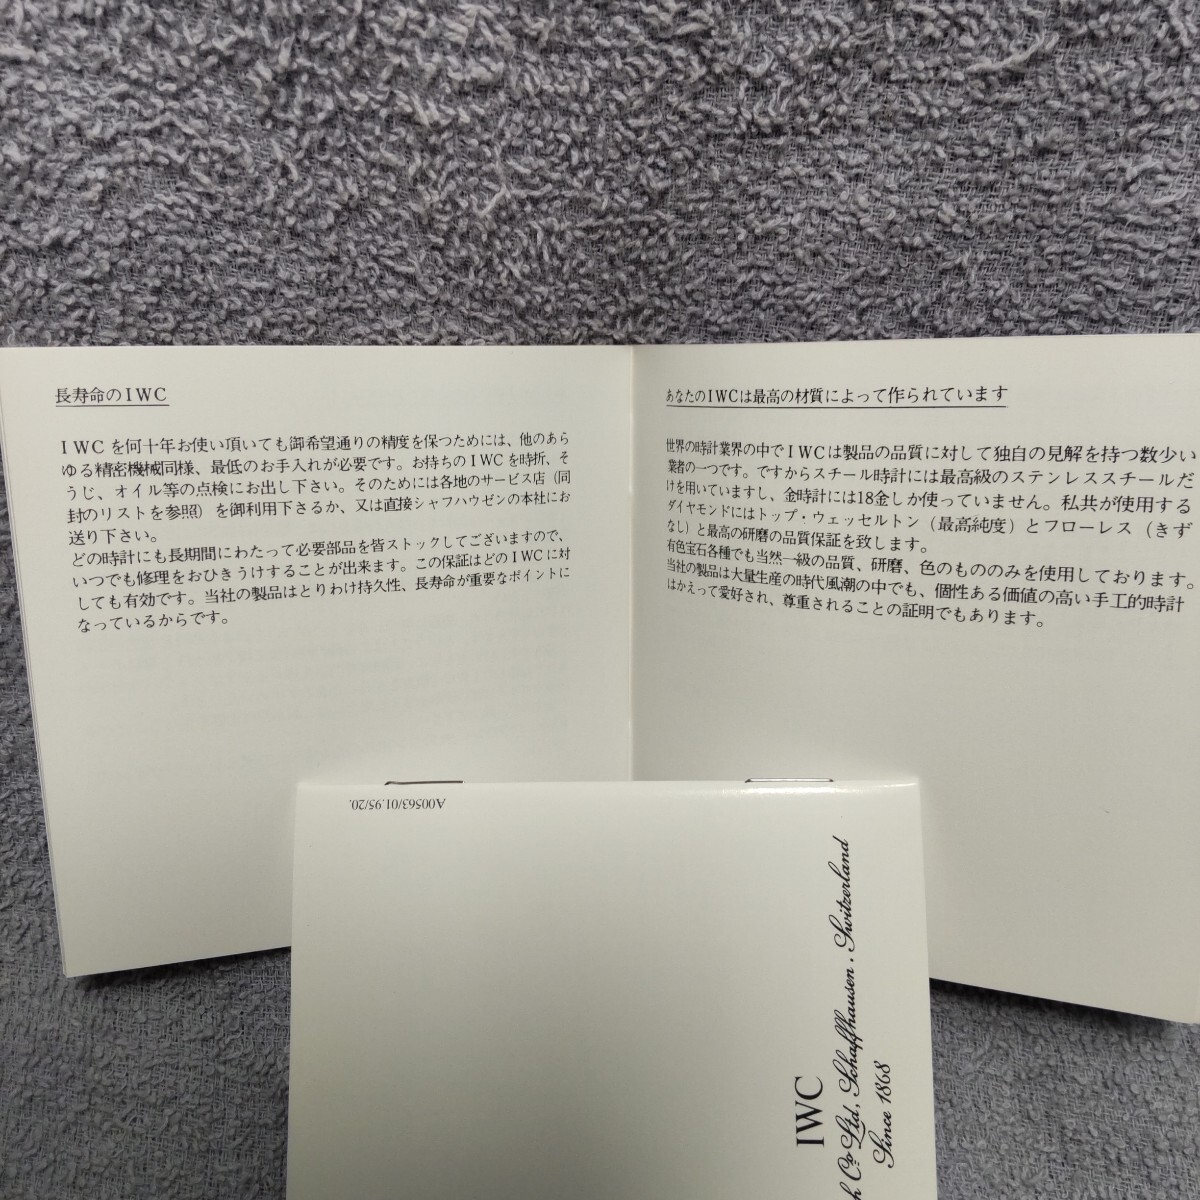 長寿命のIWC
IWCを何十年お使い頂いても御希望通りの精度を保つためには、他のあら
ゆる精密機械同様、最低のお手入れが必要です。お持ちのIWCを時折、そ
うじ、オイル等の点検にお出し下さい。そのためには各地のサービス店（同
封のリストを参照）を御利用下さるか、又は直接シャフハウゼンの本社にお
送り下さい。
どの時計にも長期間にわたって必要部品を皆ストックしてございますので、
いつでも修理をおひきうけすることが出来ます。この保証はどのIWCに対
しても有効です。当社の製品はとりわけ持久性、長寿命が重要なポイントに
なっているからです。
あなたのIWCは最高の材質によって作られています
世界の時計業界の中でIWCは製品の品質に対して独自の見解を持つ数少い
業者の一つです。ですからスチール時計には最高級のステンレススチールだ
けを用いていますし、金時計には18金しか使っていません。私共が使用する
ダイヤモンドにはトップ・ウェッセルトン（最高純度）とフローレス（きず
なし）と最高の研磨の品質保証を致します。
有色宝石各種でも当然一級の品質、研磨、色のもののみを使用しております。
当社の製品は大量生産の時代風潮の中でも、個性ある価値の高い手工的時計
はかえって愛好され、尊重されることの証明でもあります。
A00563/01.95/20.
IWC
h Co Ltd, Schaffhausen . Switzerland
Since 1868